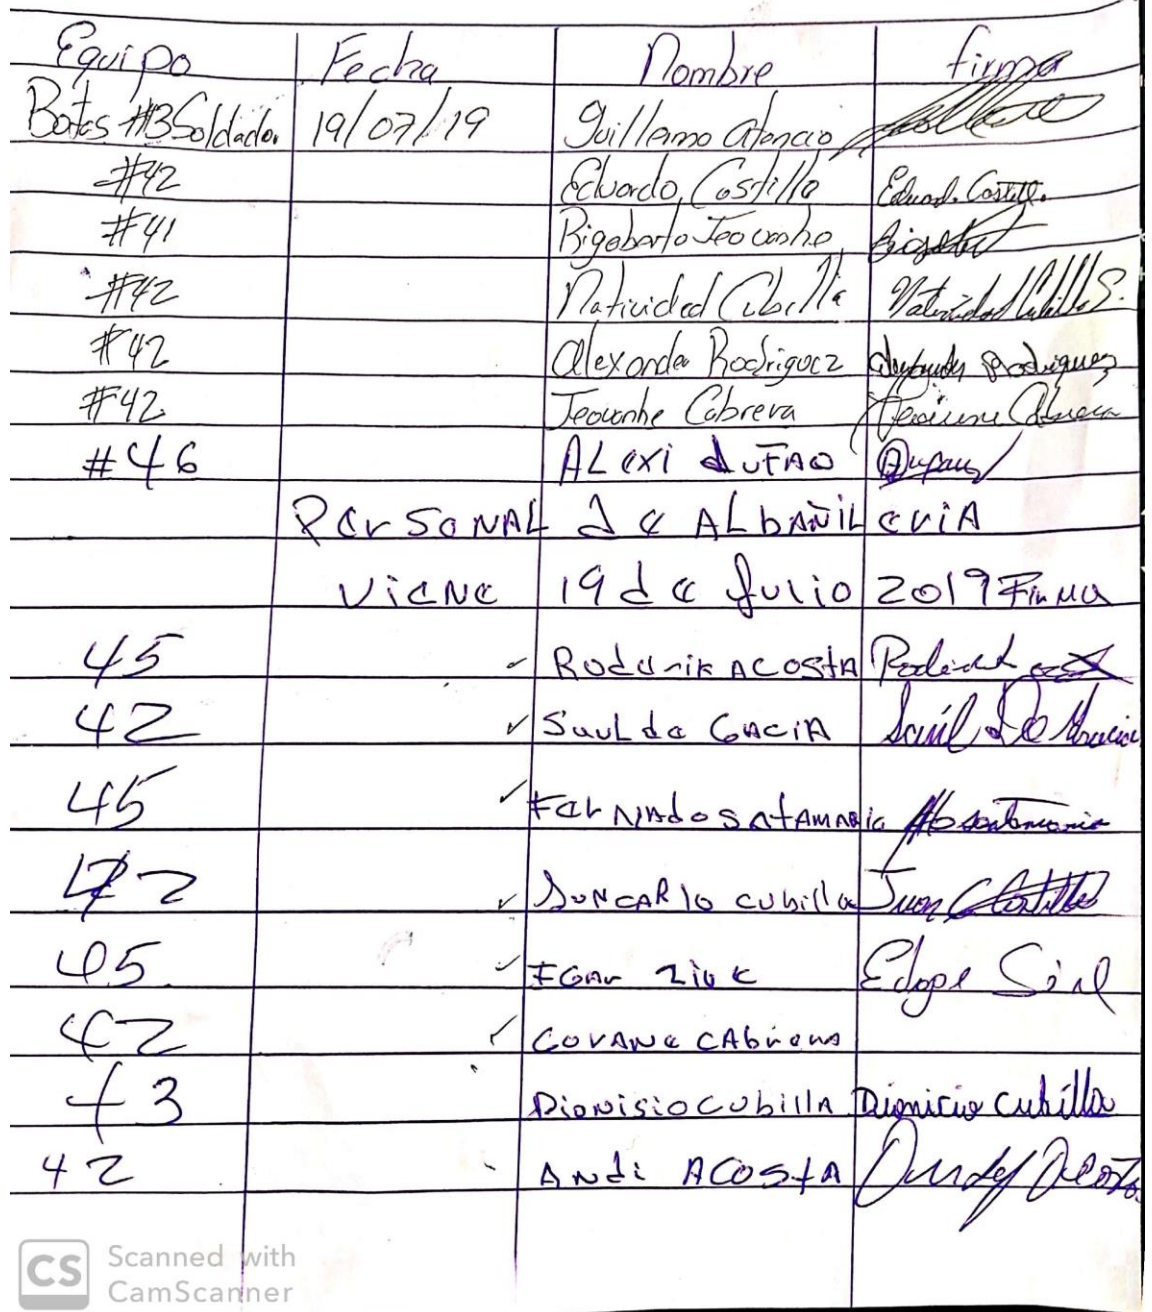 Equipo Fecha Nombre firma
Botas #43 Soldador 19/07/19 Guillermo Atencio
#42 Eduardo Costilla Eduard. Costill.
#41 Rigoberto Jeovanhe
#42 Natividad Cubilla Natividad Cubilla S.
#42 Alexander Rodriguez Alexander Rodriguez
#42 Jeovanhe Cabrera Cabrera
#46 ALexi duFAO
PerSONAL de ALbAÑILeriA
VieNe 19 de Julio 2019 FirMa
45 RoderiK ACOStA
42 SauL de GACiA Saúl De Gracia
45 FerNAdo SAtAMARia
42 JUNCARlo cubilla Juan
45 EGAr
42 COVANe CAbrera
43 DioNisio cubillA Dionicio cubilla
42 ANdi ACOStA
CS Scanned with
CamScanner